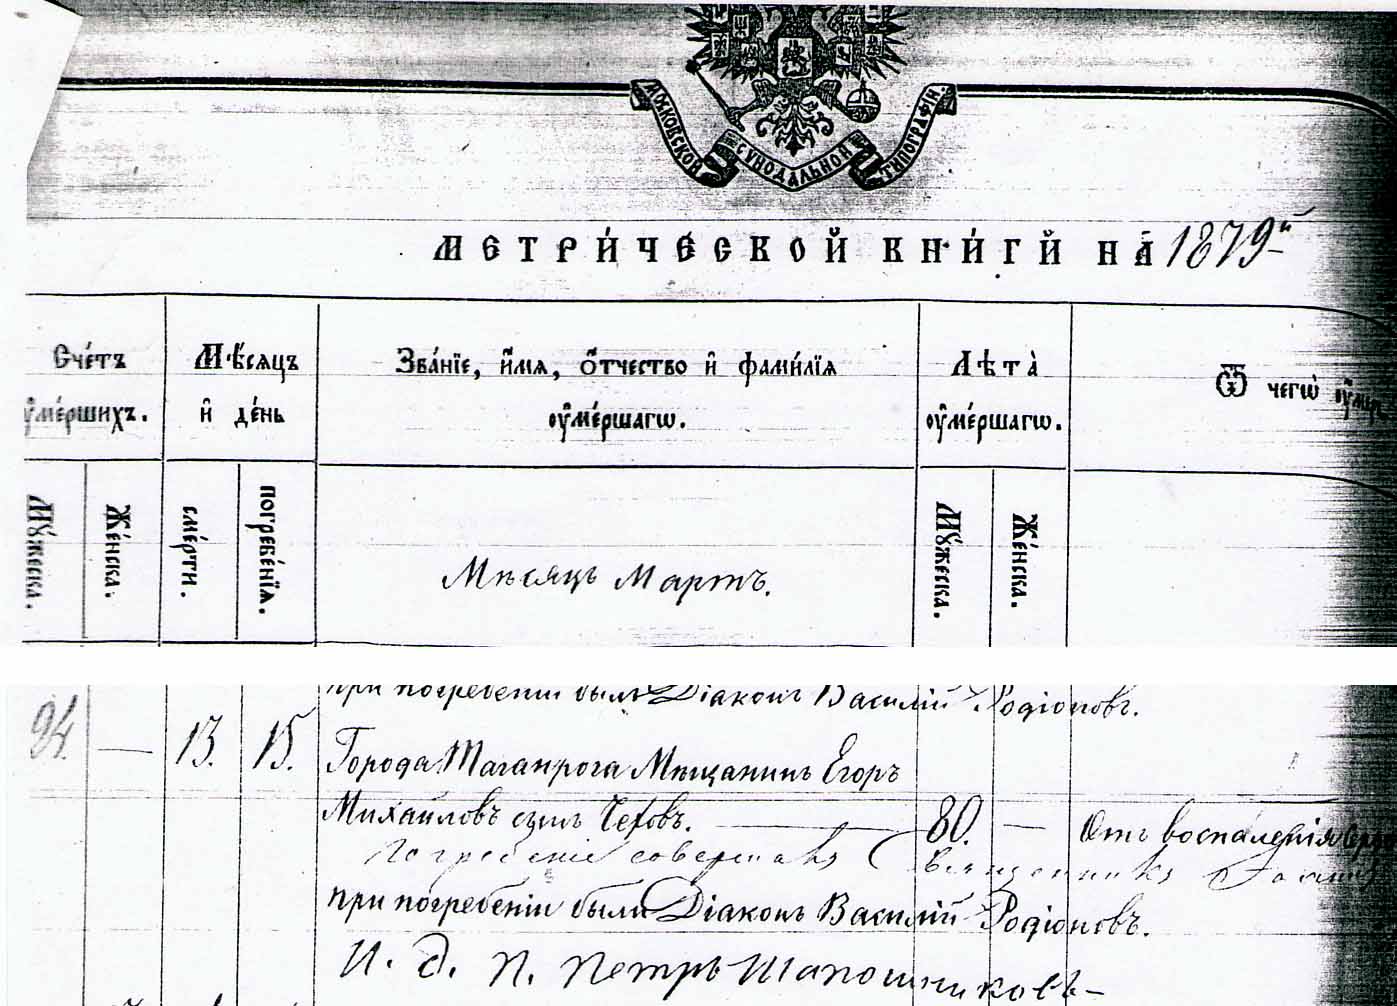 МОСКОВСКОЙ СѴНОДАЛЬНОЙ ТИПОГРАФІИ
МЕТРИ́ЧЕСКОЙ КНИ́ГИ НА̀ 1879й
Сче́тъ ᲂу҆ме́ршихъ.
Мѣ́сяцъ и҆ де́нь
Зва́нїе, и҆́мя, ѻ҆́тчество и҆ фами́лїя
ᲂу҆ме́ршагѡ.
Лѣта̀
ᲂу҆ме́ршагѡ.
Ѿ чегѡ̀
Мꙋ́жеска.
Же́нска.
сме́рти.
погребе́нїя.
Мѣсяцъ Мартъ.
Мꙋ́жеска.
Же́нска.
при погребеніи былъ Діаконъ Василій Родіоновъ.
24. — 13. 15. Города Таганрога Мѣщанинъ Егоръ
Михайловъ сынъ Чеховъ. — 80. — Отъ воспаленія
Погребеніе совершалъ Священникъ
при погребеніи были Діаконъ Василій Родіоновъ.
И. д. п. Петръ Шапошниковъ